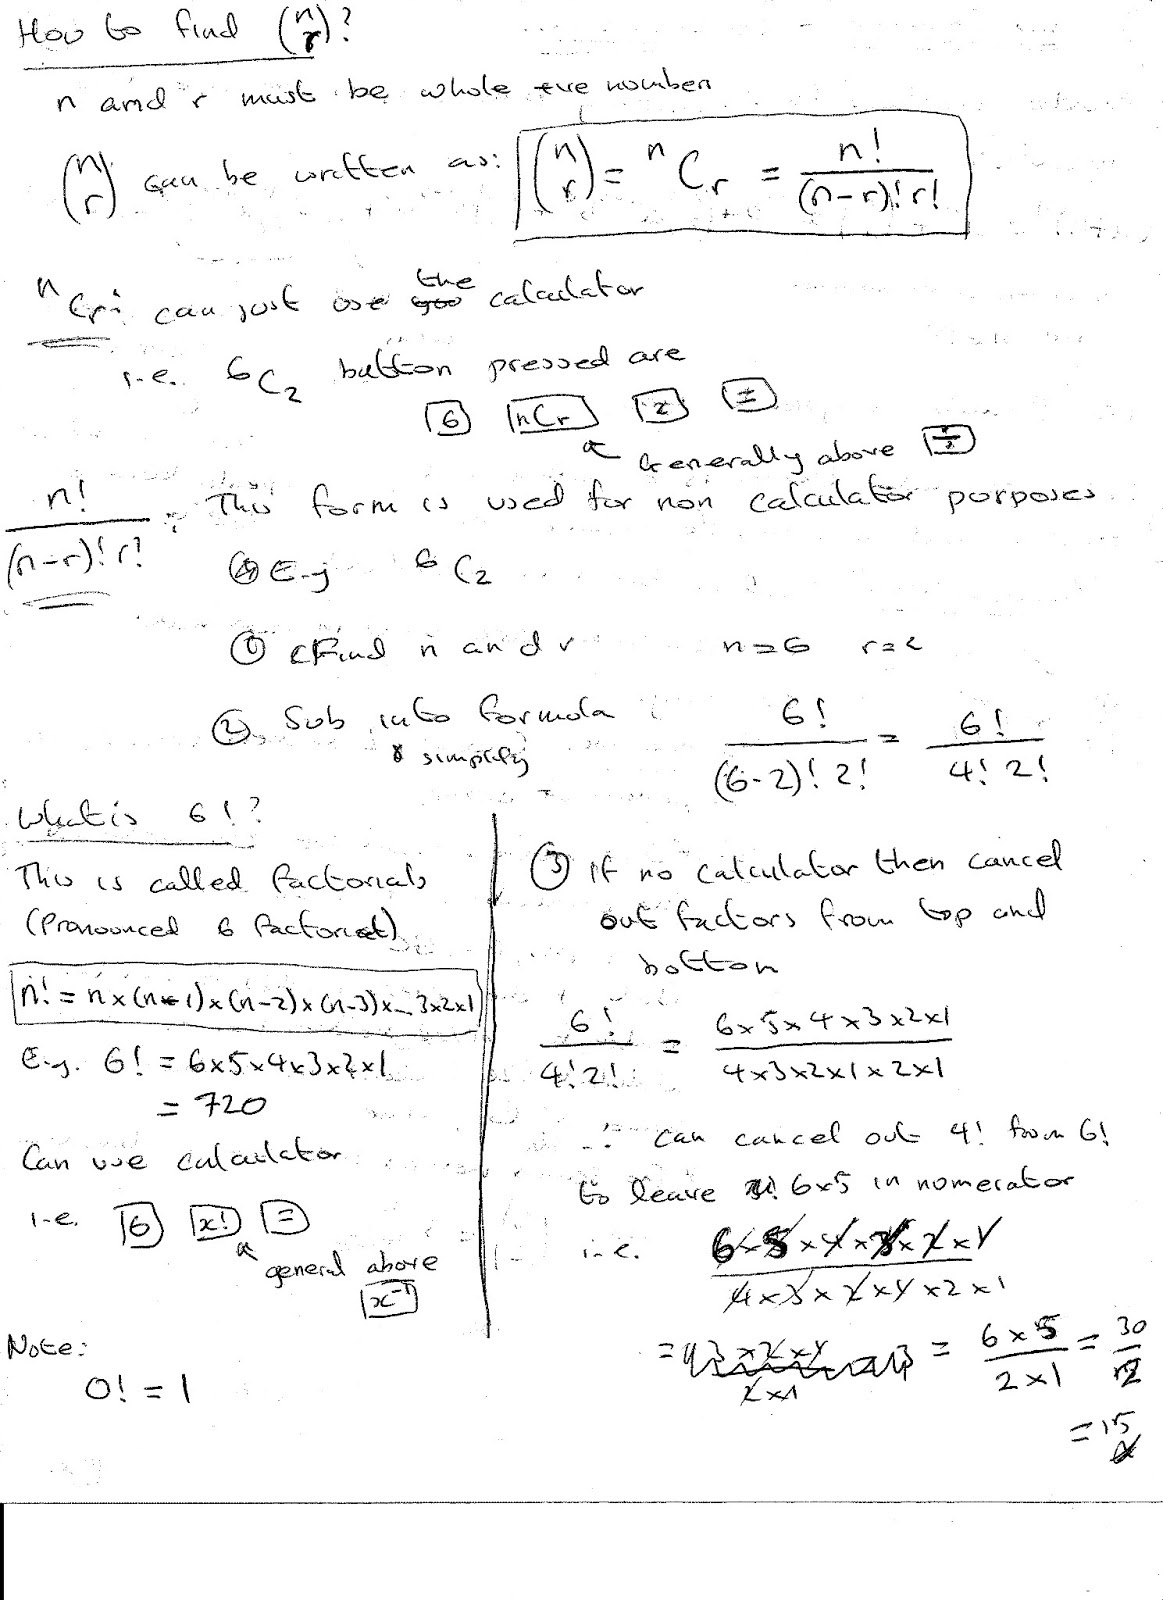 How to find (n r)?
n and r must be whole +ve numbers
(n r) can be written as: (n r) = ⁿCᵣ = n! / (n-r)! r!
ⁿCᵣ: can just use the calculator
i.e. ⁶C₂ button pressed are
6 nCr 2 =
Generally above ÷
n! / (n-r)! r! : This form is used for non calculator purposes
E.g ⁶C₂
① Find n and r n=6 r=2
② Sub into formula 6! / (6-2)! 2! = 6! / 4! 2!
& simplify
What is 6!?
This is called factorials
(Pronounced 6 factorial)
n! = n×(n-1)×(n-2)×(n-3)×...3×2×1
E.g. 6! = 6×5×4×3×2×1
= 720
Can use calculator
i.e. 6 x! =
general above
x⁻¹
Note:
0! = 1
③ If no calculator then cancel
out factors from top and
bottom
6! / 4! 2! = 6×5×4×3×2×1 / 4×3×2×1×2×1
∴ can cancel out 4! from 6!
to leave 6×5 in nomerator
i.e. 6×5×4×3×2×1 / 4×3×2×1×2×1
= 6×5 / 2×1 = 30 / 2
= 15